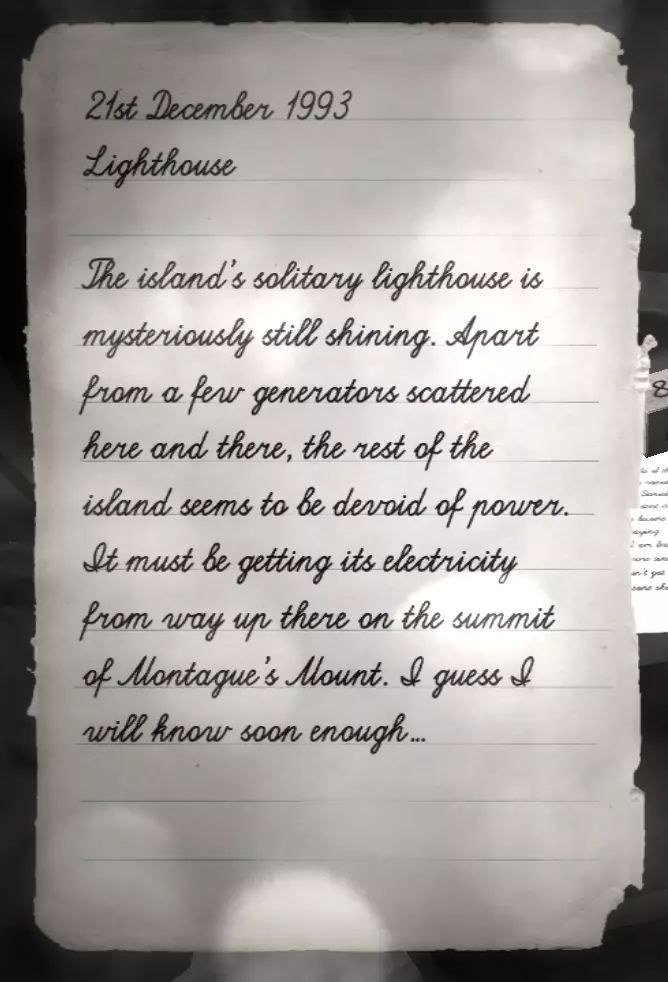 21st December 1993
Lighthouse
The island's solitary lighthouse is
mysteriously still shining. Apart
from a few generators scattered
here and there, the rest of the
island seems to be devoid of power.
It must be getting its electricity
from way up there on the summit
of Montague's Mount. I guess I
will know soon enough...
8